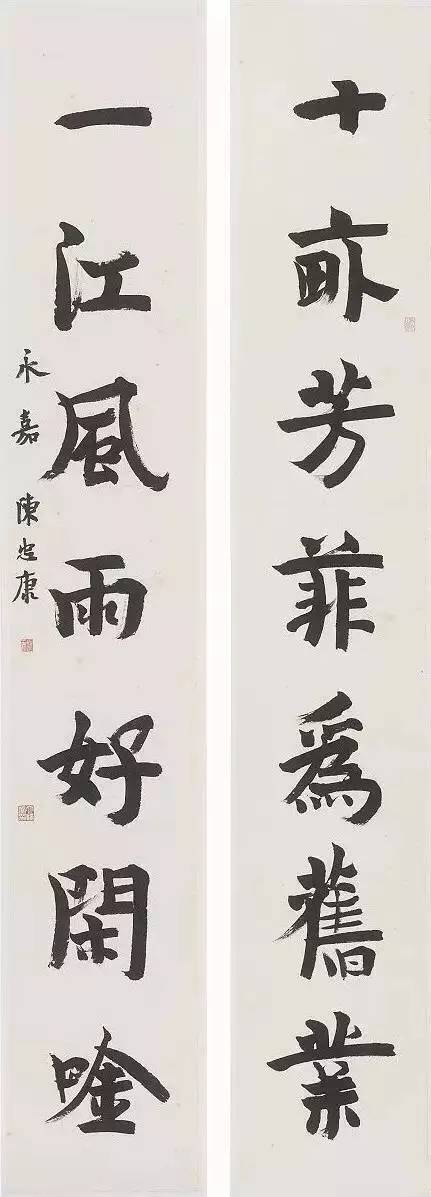 十畝芳菲爲舊業
一江風雨好閑唫
永嘉 陳忠康